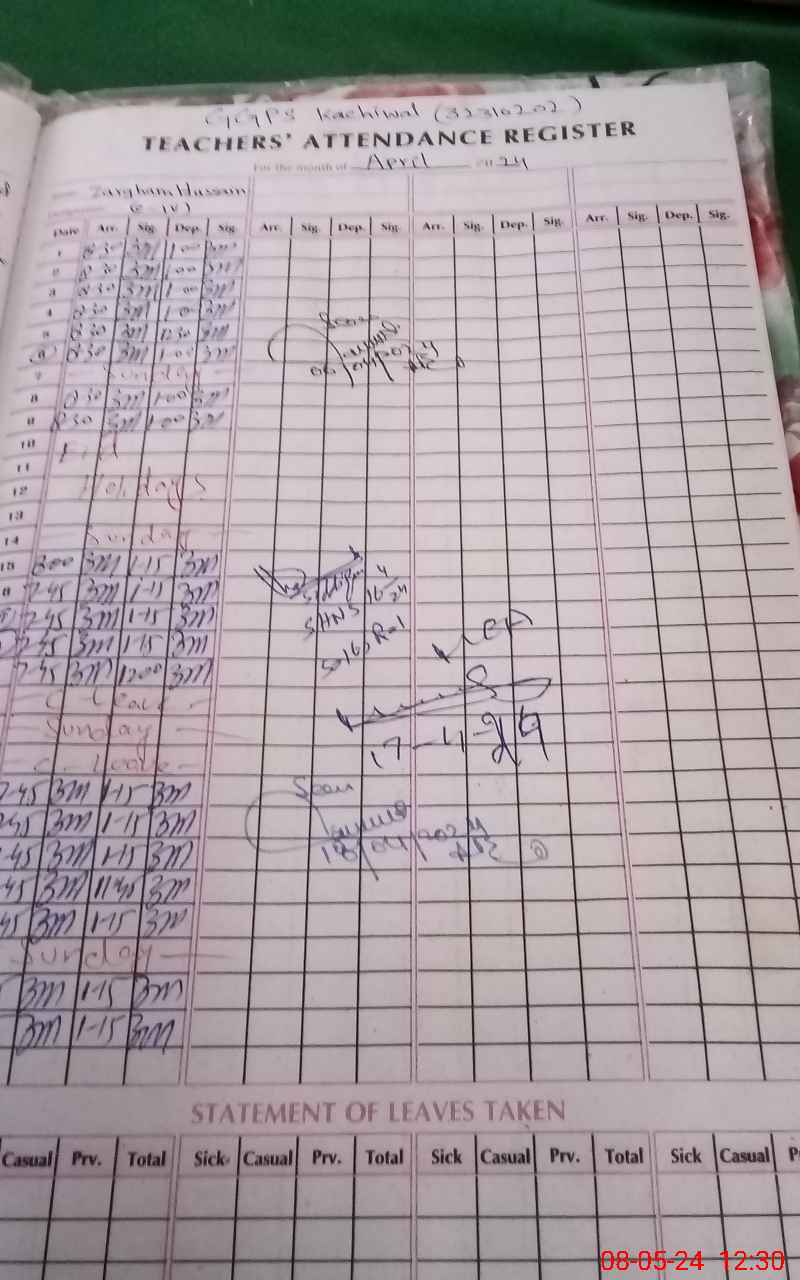 GGPS Kachiwal (32310202)
TEACHERS' ATTENDANCE REGISTER
For the month of April 2024
Zargham Hussain
Date Arr. Sig. Dep. Sig. Arr. Sig. Dep. Sig. Arr. Sig. Dep. Sig. Arr. Sig. Dep. Sig.
1 8 30 3m 1 00 3m
2 8 30 3m 1 00 3m
3 8 30 3m 1 00 3m
4 8 30 3m 1 00 3m
5 8 30 3m 12 30 3m
6 8 30 3m 1 00 3m
7 Sunday
8 8 30 3m 1 00 3m
9 8 30 3m 1 00 3m
10
11
12 Holidays
13
14 Sunday
15 8 00 3m 1-15 3m
7-45 3m 1-15 3m
7-45 3m 1-15 3m
7-45 3m 1-15 3m
7-45 3m 12 00 3m
C-Leave
Sunday
C-Leave
7-45 3m 1-15 3m
45 3m 1-15 3m
45 3m 1-15 3m
45 3m 11 45 3m
45 3m 1-15 3m
Sunday
3m 1-15 3m
3m 1-15 3m
Seen
06/04/2024
16-4-24
SHNS
17-4-24
Seen
18/04/2024
STATEMENT OF LEAVES TAKEN
Casual Prv. Total Sick Casual Prv. Total Sick Casual Prv. Total Sick Casual P
08-05-24 12:30